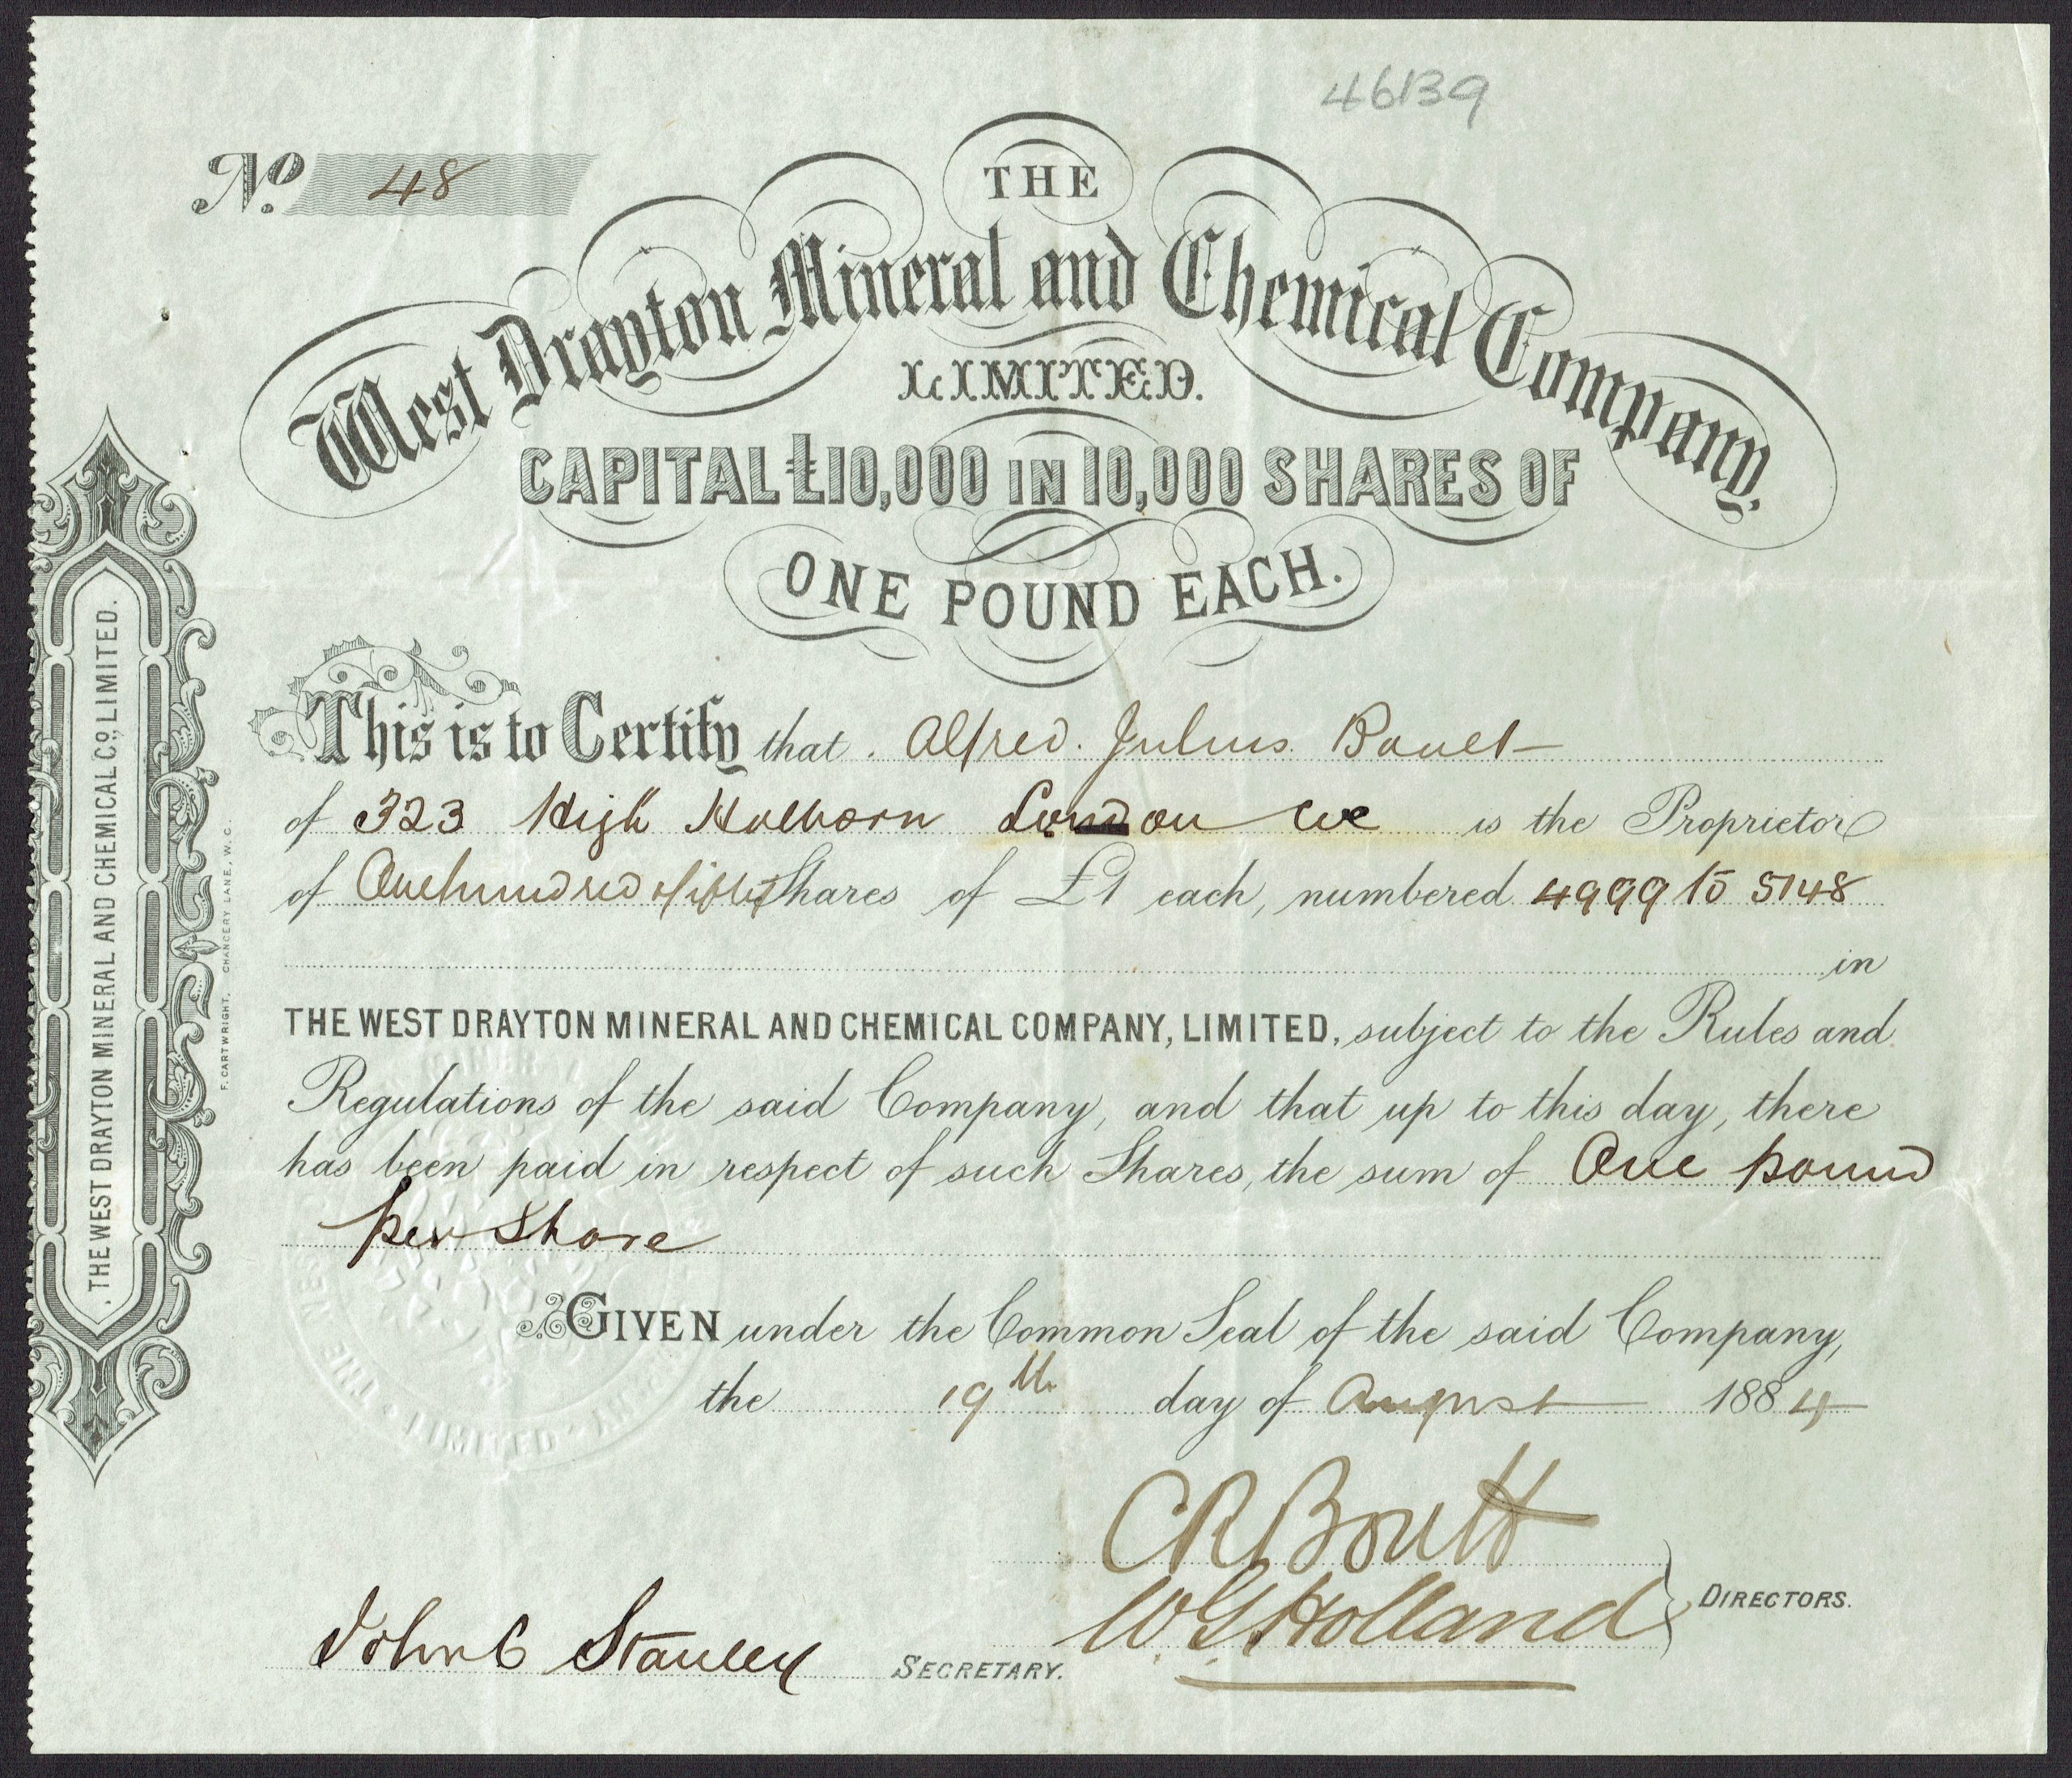 46139
No. 48
THE
West Drayton Mineral and Chemical Company,
LIMITED.
CAPITAL £10,000 IN 10,000 SHARES OF
ONE POUND EACH.
This is to Certify that Alfred Julius
of 323 High Holborn London WC is the Proprietor
of One hundred & fifty Shares of £1 each, numbered 4999 to 5148
in
THE WEST DRAYTON MINERAL AND CHEMICAL COMPANY, LIMITED, subject to the Rules and
Regulations of the said Company, and that up to this day, there
has been paid in respect of such Shares, the sum of One pound
per Share
GIVEN under the Common Seal of the said Company,
the 19th day of August 1884
C R Boutt
W. G. Holland
DIRECTORS.
John C Stanley SECRETARY.
THE WEST DRAYTON MINERAL AND CHEMICAL Co., LIMITED.
F. CARTWRIGHT, CHANCERY LANE, W.C.